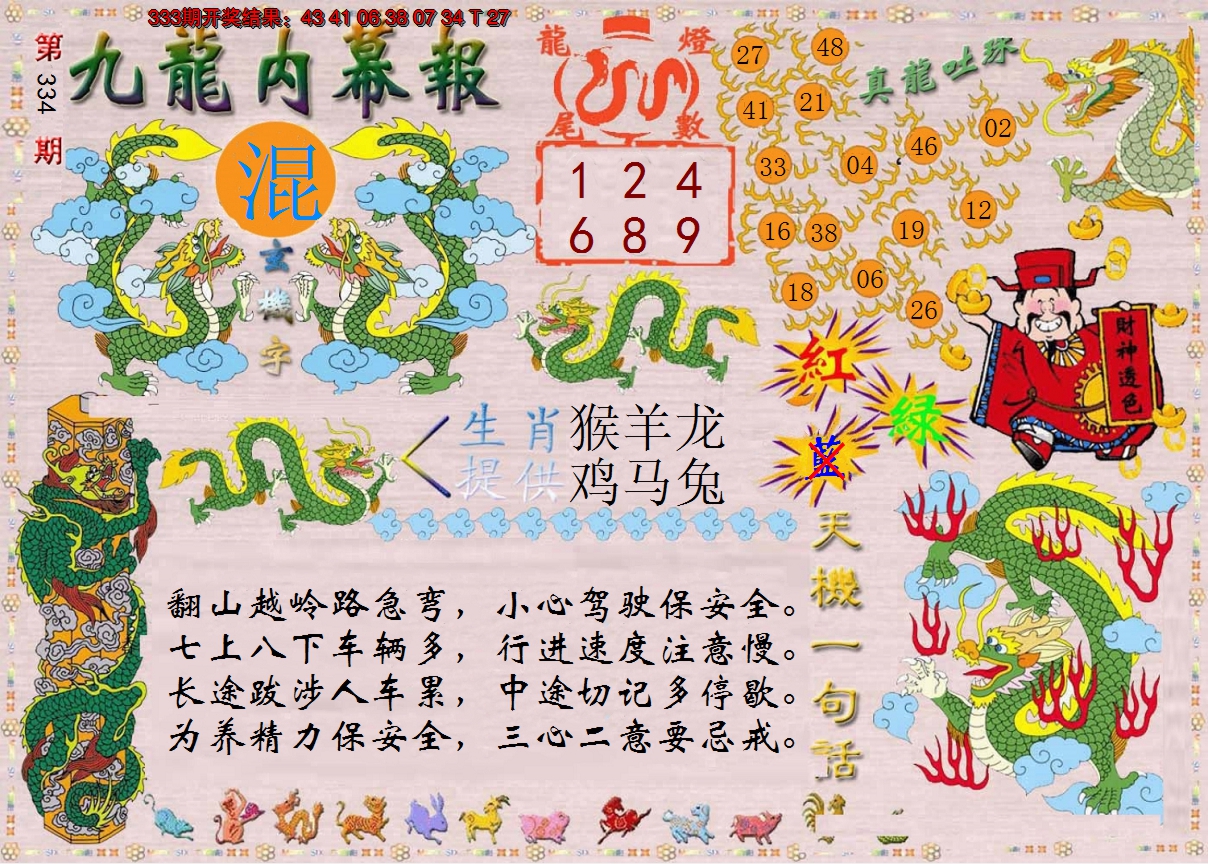 333期开奖结果：43 41 06 38 07 34 T 27
第334期
九龍内幕報
混
玄機字
龍燈尾數
1 2 4
6 8 9
真龍吐珠
27 48
41 21
33 04 46 02
16 38 19 12
18 06 26
紅
綠
藍
財神透色
生肖提供
猴羊龙
鸡马兔
翻山越岭路急弯，小心驾驶保安全。
七上八下车辆多，行进速度注意慢。
长途跋涉人车累，中途切记多停歇。
为养精力保安全，三心二意要忌戒。
天機一句話